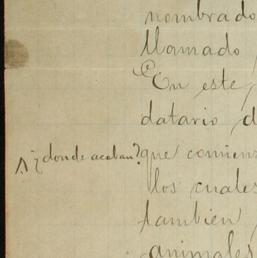 nombrado
llamado
En este,
datario d
¿donde acaban? que comien
los cuales
también
animales